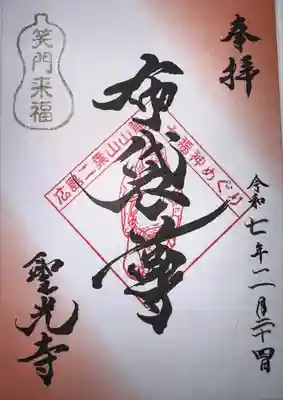 奉拝
令和七年二月二十四日
布袋尊
広島二葉山山麓七福神めぐり
笑門来福
聖光寺